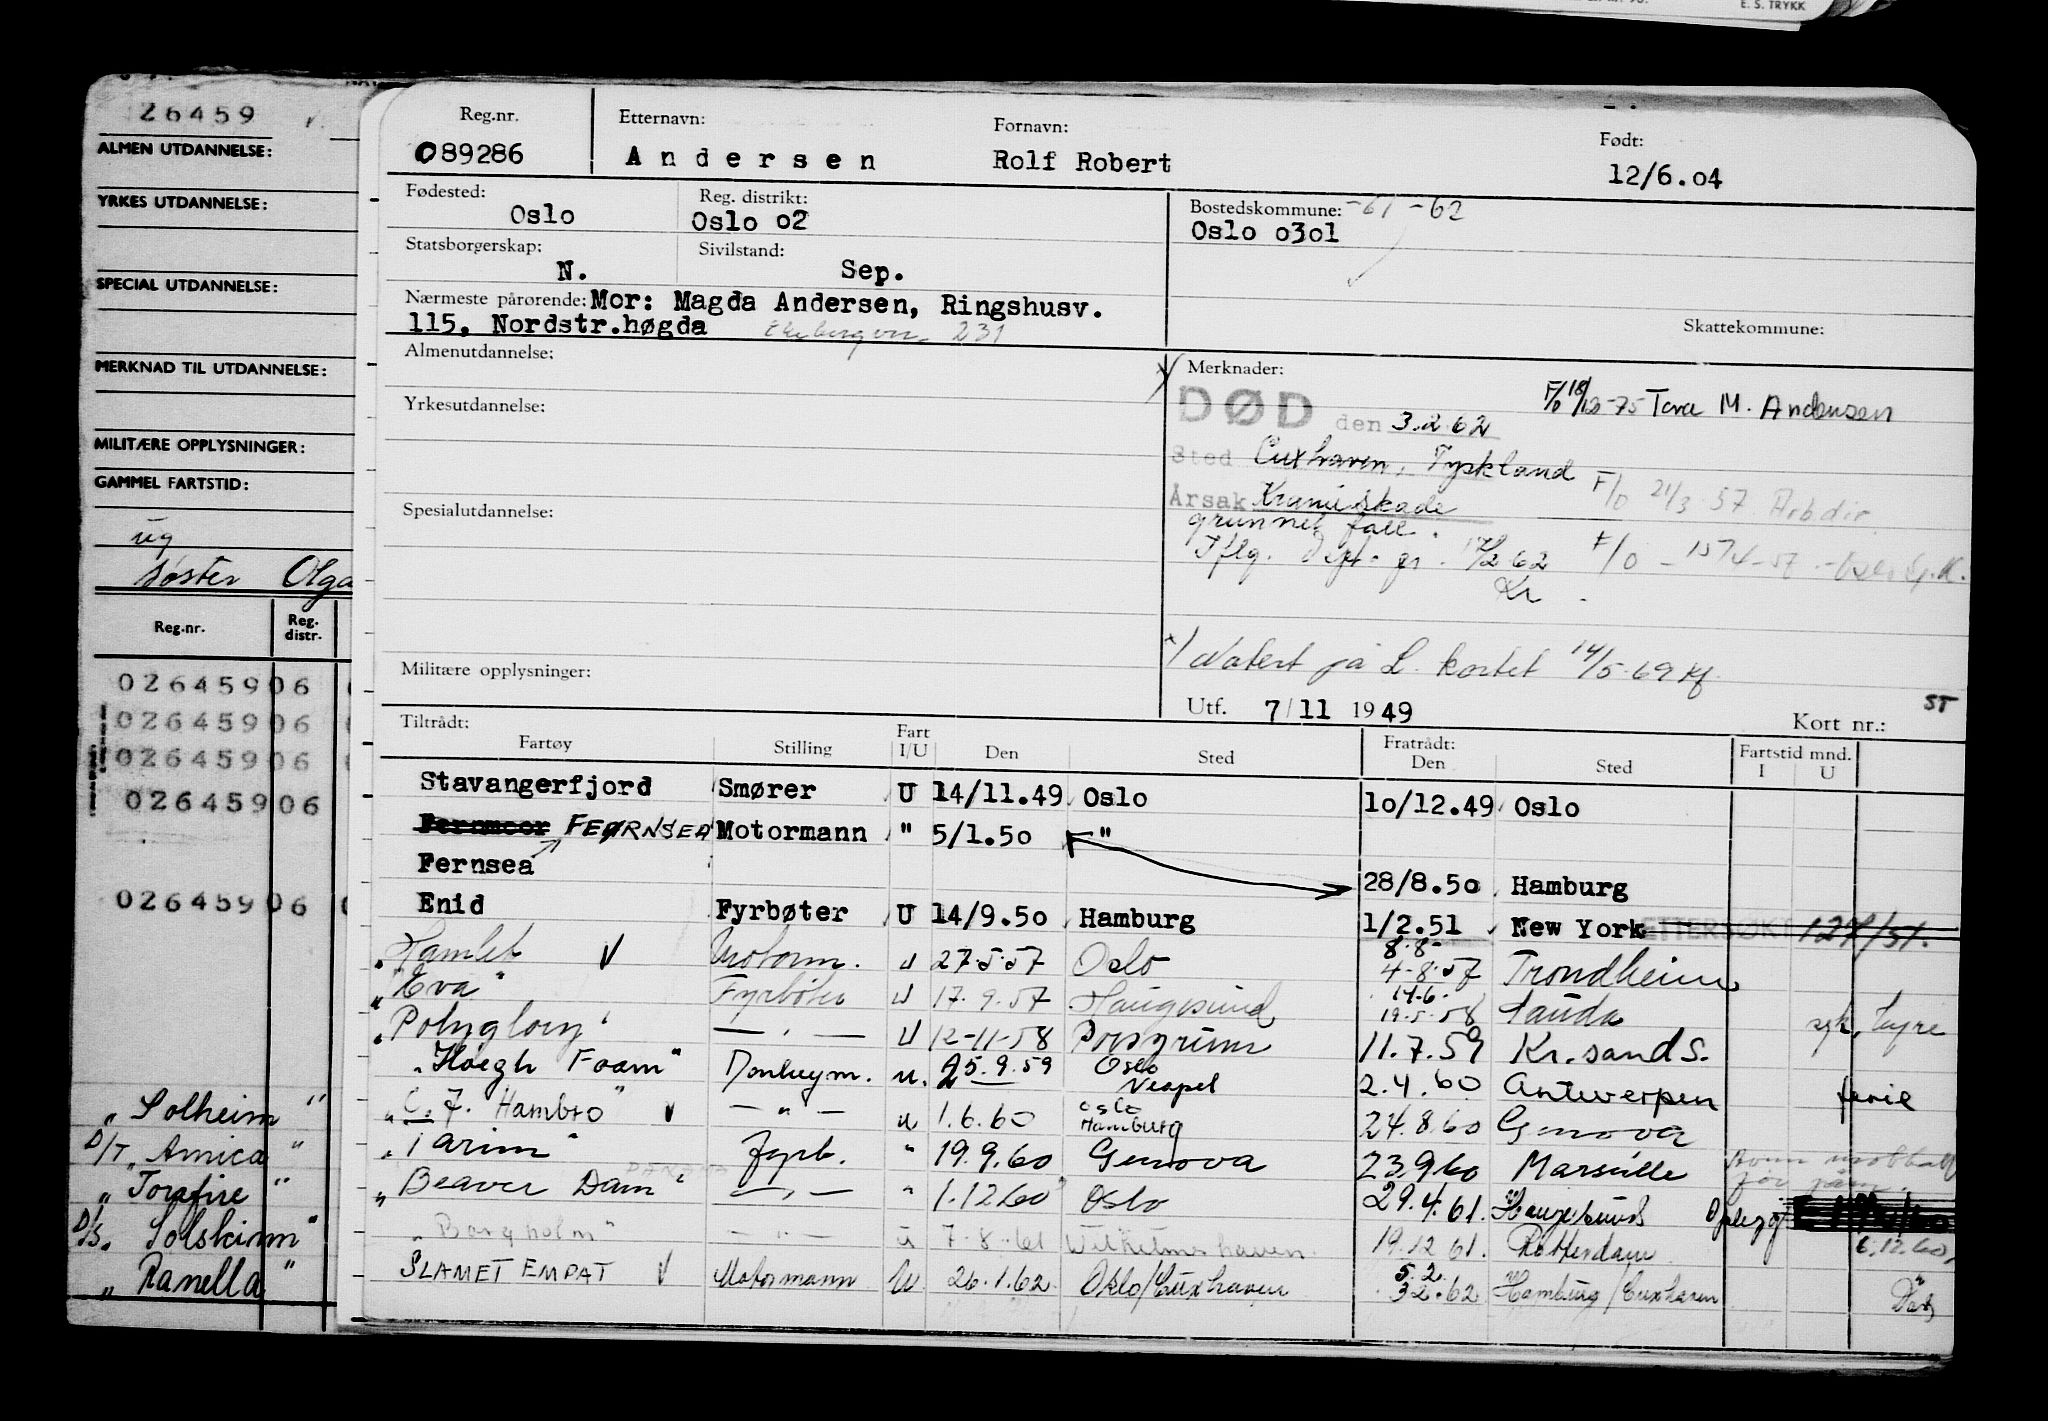 E. S. TRYKK
26459
ALMEN UTDANNELSE:
YRKES UTDANNELSE:
SPECIAL UTDANNELSE:
MERKNAD TIL UTDANNELSE:
MILITÆRE OPPLYSNINGER:
GAMMEL FARTSTID:
ug
søster Olga
Reg.nr. Reg. distr.
02645906
02645906
02645906
02645906
02645906
„ Solheim "
D/T „ Arnica "
„ Torafire "
D/S. Solskinn"
„ Ranella "
Reg.nr. Etternavn: Fornavn: Født:
089286 Andersen Rolf Robert 12/6.04
Fødested: Reg. distrikt: Bostedskommune: -61 -62
Oslo Oslo o2 Oslo o3o1
Statsborgerskap: Sivilstand:
N. Sep.
Nærmeste pårørende: Mor: Magda Andersen, Ringshusv.
115, Nordstr.høgda 231
Skattekommune:
Almenutdannelse:
Yrkesutdannelse:
Spesialutdannelse:
Militære opplysninger:
Merknader:
F/o 18/12-75 Tova M. Andersen
DØD den 3.2.62
Sted Cuxhaven, Tyskland
F/o 21/3 57 Arb.dir.
Årsak Kranieskade
grunnet fall.
Iflg. 62 F/o - 15/4-57
Kr.
x/ Notert på L. kortet 14/5-69
Utf. 7/11 1949 Kort nr.: ST
Tiltrådt: Fratrådt: Fartstid mnd.
Fartøy Stilling Fart I/U Den Sted Den Sted I U
Stavangerfjord Smører U 14/11.49 Oslo 10/12.49 Oslo
Fernmoor FERNSEA Motormann " 5/1.50 "
Fernsea 28/8.50 Hamburg
Enid Fyrbøter U 14/9.50 Hamburg 1/2.51 New York ETTERSØKT
„Hamlet V Motorm. U 27.5.57 Oslo 8.8- 4-8-57 Trondheim
„Eva" Fyrbøter U 17.9.57 Haugesund 14.6. 19.5.58 Sauda
„Polyglory" — " — U 12-11-58 Porsgrunn 11.7.59 Kr.sand S.
„Høegh Foam" Donkeym. u. 25.9.59 Oslo Neapel 2.4.60 Antwerpen ferie
„C. J. Hambro" V — " — u 1.6.60 Oslo Hamburg 24.8.60 Genova
„Tarim" fyrb. " 19.9.60 Genova 23.9.60 Marseille
„Beaver Dam" — " — " 1.12.60 Oslo 29.4.61. Haugesund
„Borgholm" — " — u 7.8.61 Wilhelmshaven 19.12.61. Rotterdam 6.12.60,
SLAMET EMPAT V Motormann U 26.1.62 Oslo/Cuxhaven 5.2. 3.2.62 Hamburg/Cuxhaven Død